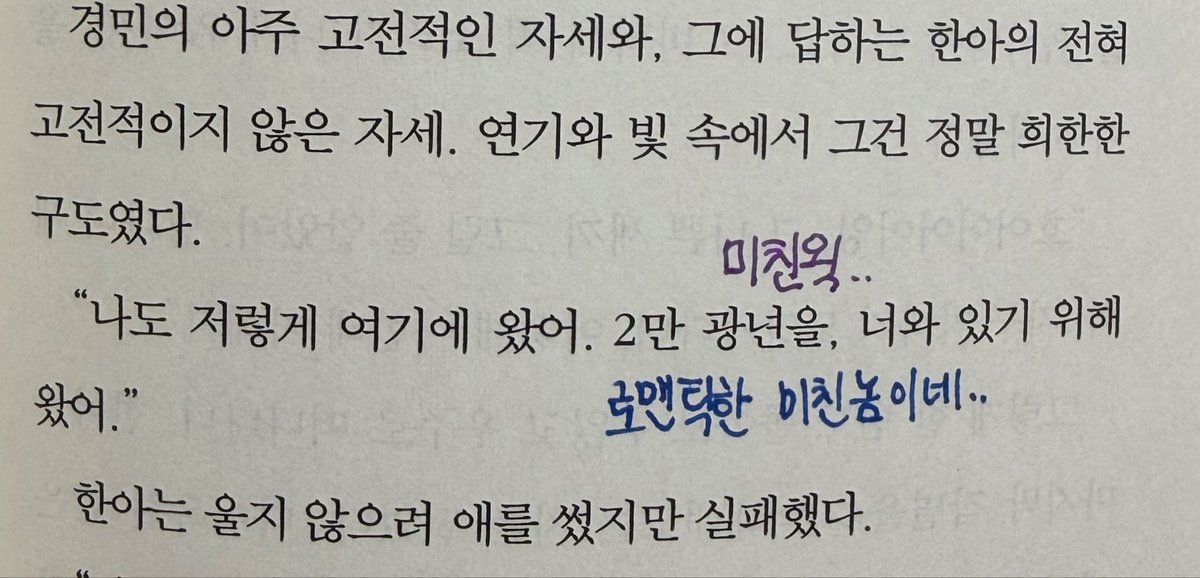 경민의 아주 고전적인 자세와, 그에 답하는 한아의 전혀
고전적이지 않은 자세. 연기와 빛 속에서 그건 정말 희한한
구도였다.
미친왹..
“나도 저렇게 여기에 왔어. 2만 광년을, 너와 있기 위해
왔어.”
로맨틱한 미친놈이네..
한아는 울지 않으려 애를 썼지만 실패했다.